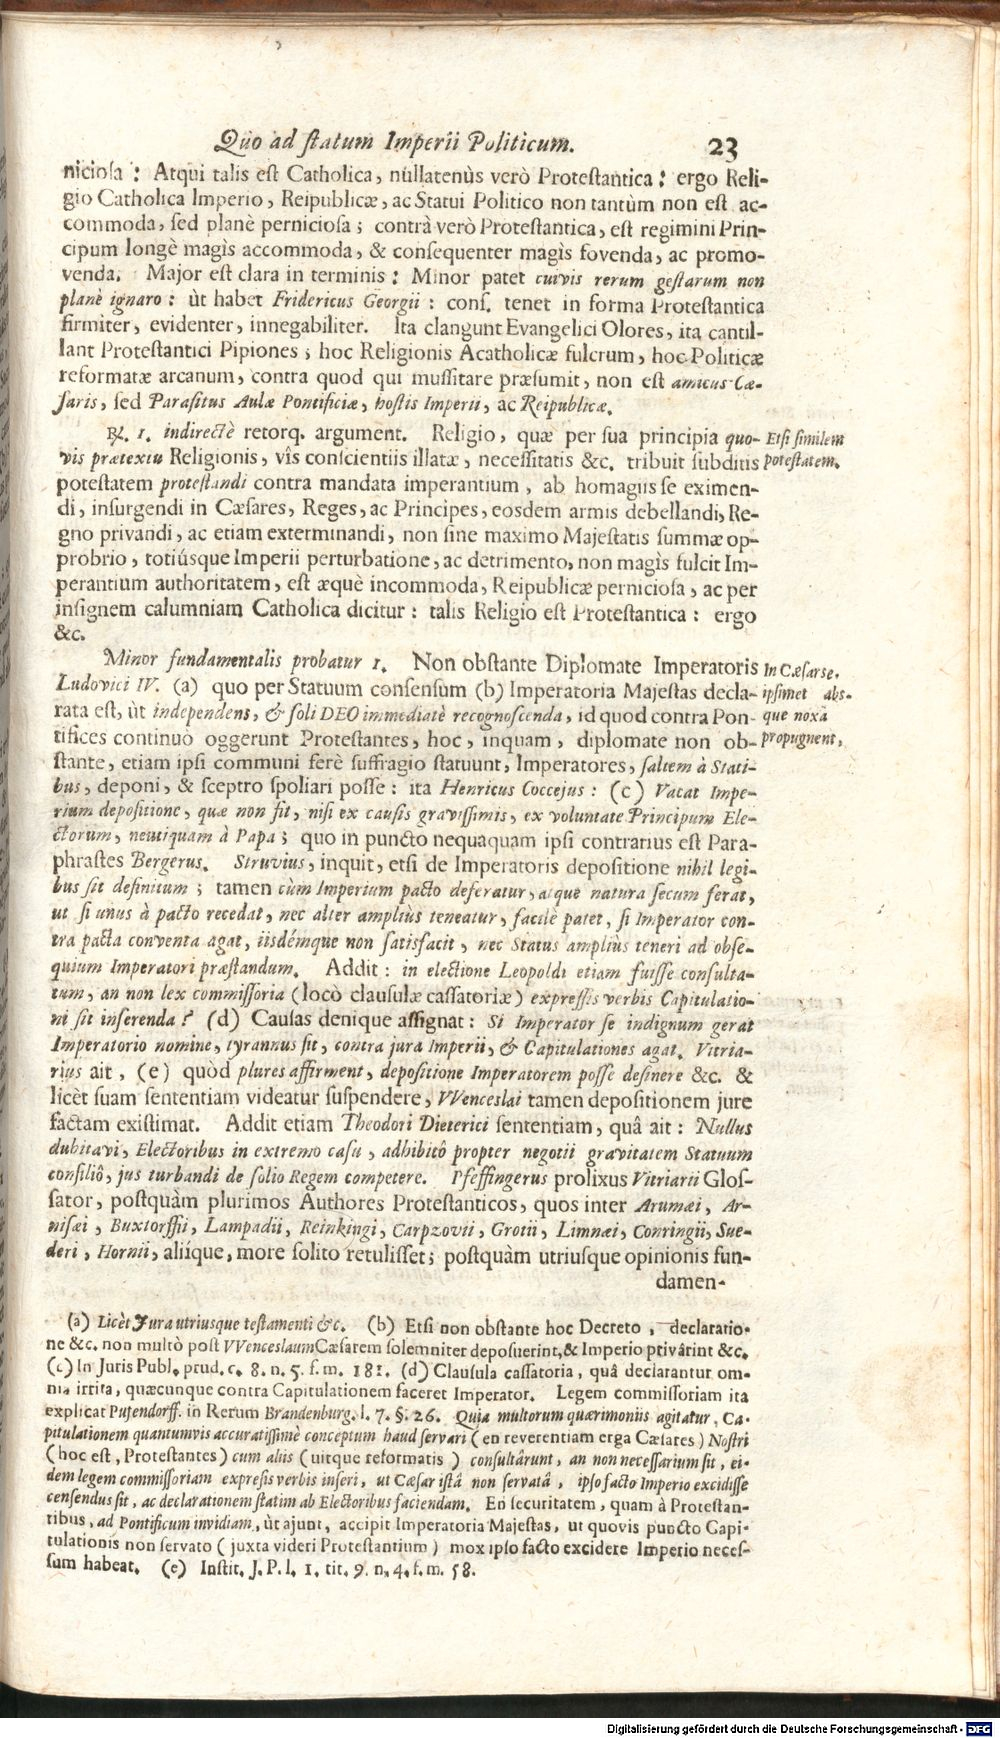 Quo ad statum Imperii Politicum. 23
niciosa: Atqui talis est Catholica, nullatenùs verò Protestantica: ergo Reli-
gio Catholica Imperio, Reipublicæ, ac Statui Politico non tantùm non est ac-
commoda, sed planè perniciosa; contrà verò Protestantica, est regimini Prin-
cipum longè magìs accommoda, & consequenter magìs fovenda, ac promo-
venda. Major est clara in terminis: Minor patet cuivis rerum gestarum non
planè ignaro: ùt habet Fridericus Georgii: cons. tenet in forma Protestantica
firmiter, evidenter, innegabiliter. Ita clangunt Evangelici Olores, ita cantil-
lant Protestantici Pipiones; hoc Religionis Acatholicæ fulcrum, hoc Politicæ
reformatæ arcanum, contra quod qui mussitare præsumit, non est amicus Cæ-
saris, sed Parasitus Aulæ Pontificiæ, hostis Imperii, ac Reipublicæ.
R. 1. indirectè retorq. argument. Religio, quæ per sua principia quo-
vis prætextu Religionis, vîs conscientiis illatæ, necessitatis &c. tribuit subditis
potestatem protestandi contra mandata imperantium, ab homagiis se eximen-
di, insurgendi in Cæsares, Reges, ac Principes, eosdem armis debellandi, Re-
gno privandi, ac etiam exterminandi, non sine maximo Majestatis summæ op-
probrio, totiúsque Imperii perturbatione, ac detrimento, non magìs fulcit Im-
perantium authoritatem, est æquè incommoda, Reipublicæ perniciosa, ac per
insignem calumniam Catholica dicitur: talis Religio est Protestantica: ergo
&c.
Etsi similem
potestatem.
Minor fundamentalis probatur 1. Non obstante Diplomate Imperatoris
Ludovici IV. (a) quo per Statuum consensum (b) Imperatoria Majestas decla-
rata est, ùt independens, & soli DEO immediatè recognoscenda, id quod contra Pon-
tifices continuò oggerunt Protestantes, hoc, inquam, diplomate non ob-
stante, etiam ipsi communi ferè suffragio statuunt, Imperatores, saltem à Stati-
bus, deponi, & sceptro spoliari posse: ita Henricus Coccejus: (c) Vacat Impe-
rium depositione, quæ non fit, nisi ex causis gravissimis, ex voluntate Principum Ele-
ctorum, neutiquam à Papa; quo in puncto nequaquam ipsi contrarius est Para-
phrastes Bergerus. Struvius, inquit, etsi de Imperatoris depositione nihil legi-
bus sit definitum; tamen cùm Imperium pacto deferatur, atque natura secum ferat,
ut si unus à pacto recedat, nec alter ampliùs teneatur, facilè patet, si Imperator con-
tra pacta conventa agat, iisdémque non satisfacit, nec Status ampliùs teneri ad obse-
quium Imperatori præstandum. Addit: in electione Leopoldi etiam fuisse consulta-
tum, an non lex commissoria (locò clausulæ cassatoriæ) expressis verbis Capitulatio-
ni sit inserenda? (d) Causas denique assignat: Si Imperator se indignum gerat
Imperatorio nomine, tyrannus sit, contra jura Imperii, & Capitulationes agat. Vitria-
rius ait, (e) quòd plures affirment, depositione Imperatorem posse desinere &c. &
licèt suam sententiam videatur suspendere, VVenceslai tamen depositionem jure
factam existimat. Addit etiam Theodori Dieterici sententiam, quâ ait: Nullus
dubitavi, Electoribus in extremo casu, adhibitô propter negotii gravitatem Statuum
consiliô, jus turbandi de solio Regem competere. Pfeffingerus prolixus Vitriarii Glos-
sator, postquàm plurimos Authores Protestanticos, quos inter Arumæi, Ar-
nisæi, Buxtorffii, Lampadii, Reinkingi, Carpzovii, Grotii, Limnæi, Conringii, Sue-
deri, Hornii, aliíque, more solito retulisset; postquàm utriusque opinionis fun-
damen-
In Cæsarse.
ipsimet abs-
que noxa
propugnent,
(a) Licèt Jura utriusque testamenti &c. (b) Etsi non obstante hoc Decreto, declaratio-
ne &c. non multò post VVenceslaum Cæsarem solemniter deposuerint, & Imperio privârint &c.
(c) In Juris Publ. prud. c. 8. n. 5. f. m. 181. (d) Clausula cassatoria, quâ declarantur om-
nia irrita, quæcunque contra Capitulationem faceret Imperator. Legem commissoriam ita
explicat Pufendorff. in Rerum Brandenburg. l. 7. §. 26. Quia multorum quærimoniis agitatur, Ca-
pitulationem quantumvis accuratissimè conceptum haud servari (en reverentiam erga Cæsares) Nostri
(hoc est, Protestantes) cum aliis (uitque reformatis) consultârunt, an non necessarium sit, ei-
dem legem commissoriam expresis verbis inseri, ut Cæsar istâ non servatâ, ipso facto Imperio excidisse
censendus sit, ac declarationem statim ab Electoribus faciendam. En securitatem, quam à Protestan-
tibus, ad Pontificum invidiam, ùt ajunt, accipit Imperatoria Majestas, ut quovis puncto Capi-
tulationis non servato (juxta videri Protestantium) mox ipso facto excidere Imperio neces-
sum habeat. (e) Instit. J. P. l. 1. tit. 9. n. 4. f. m. 58.
Digitalisierung gefördert durch die Deutsche Forschungsgemeinschaft - DFG